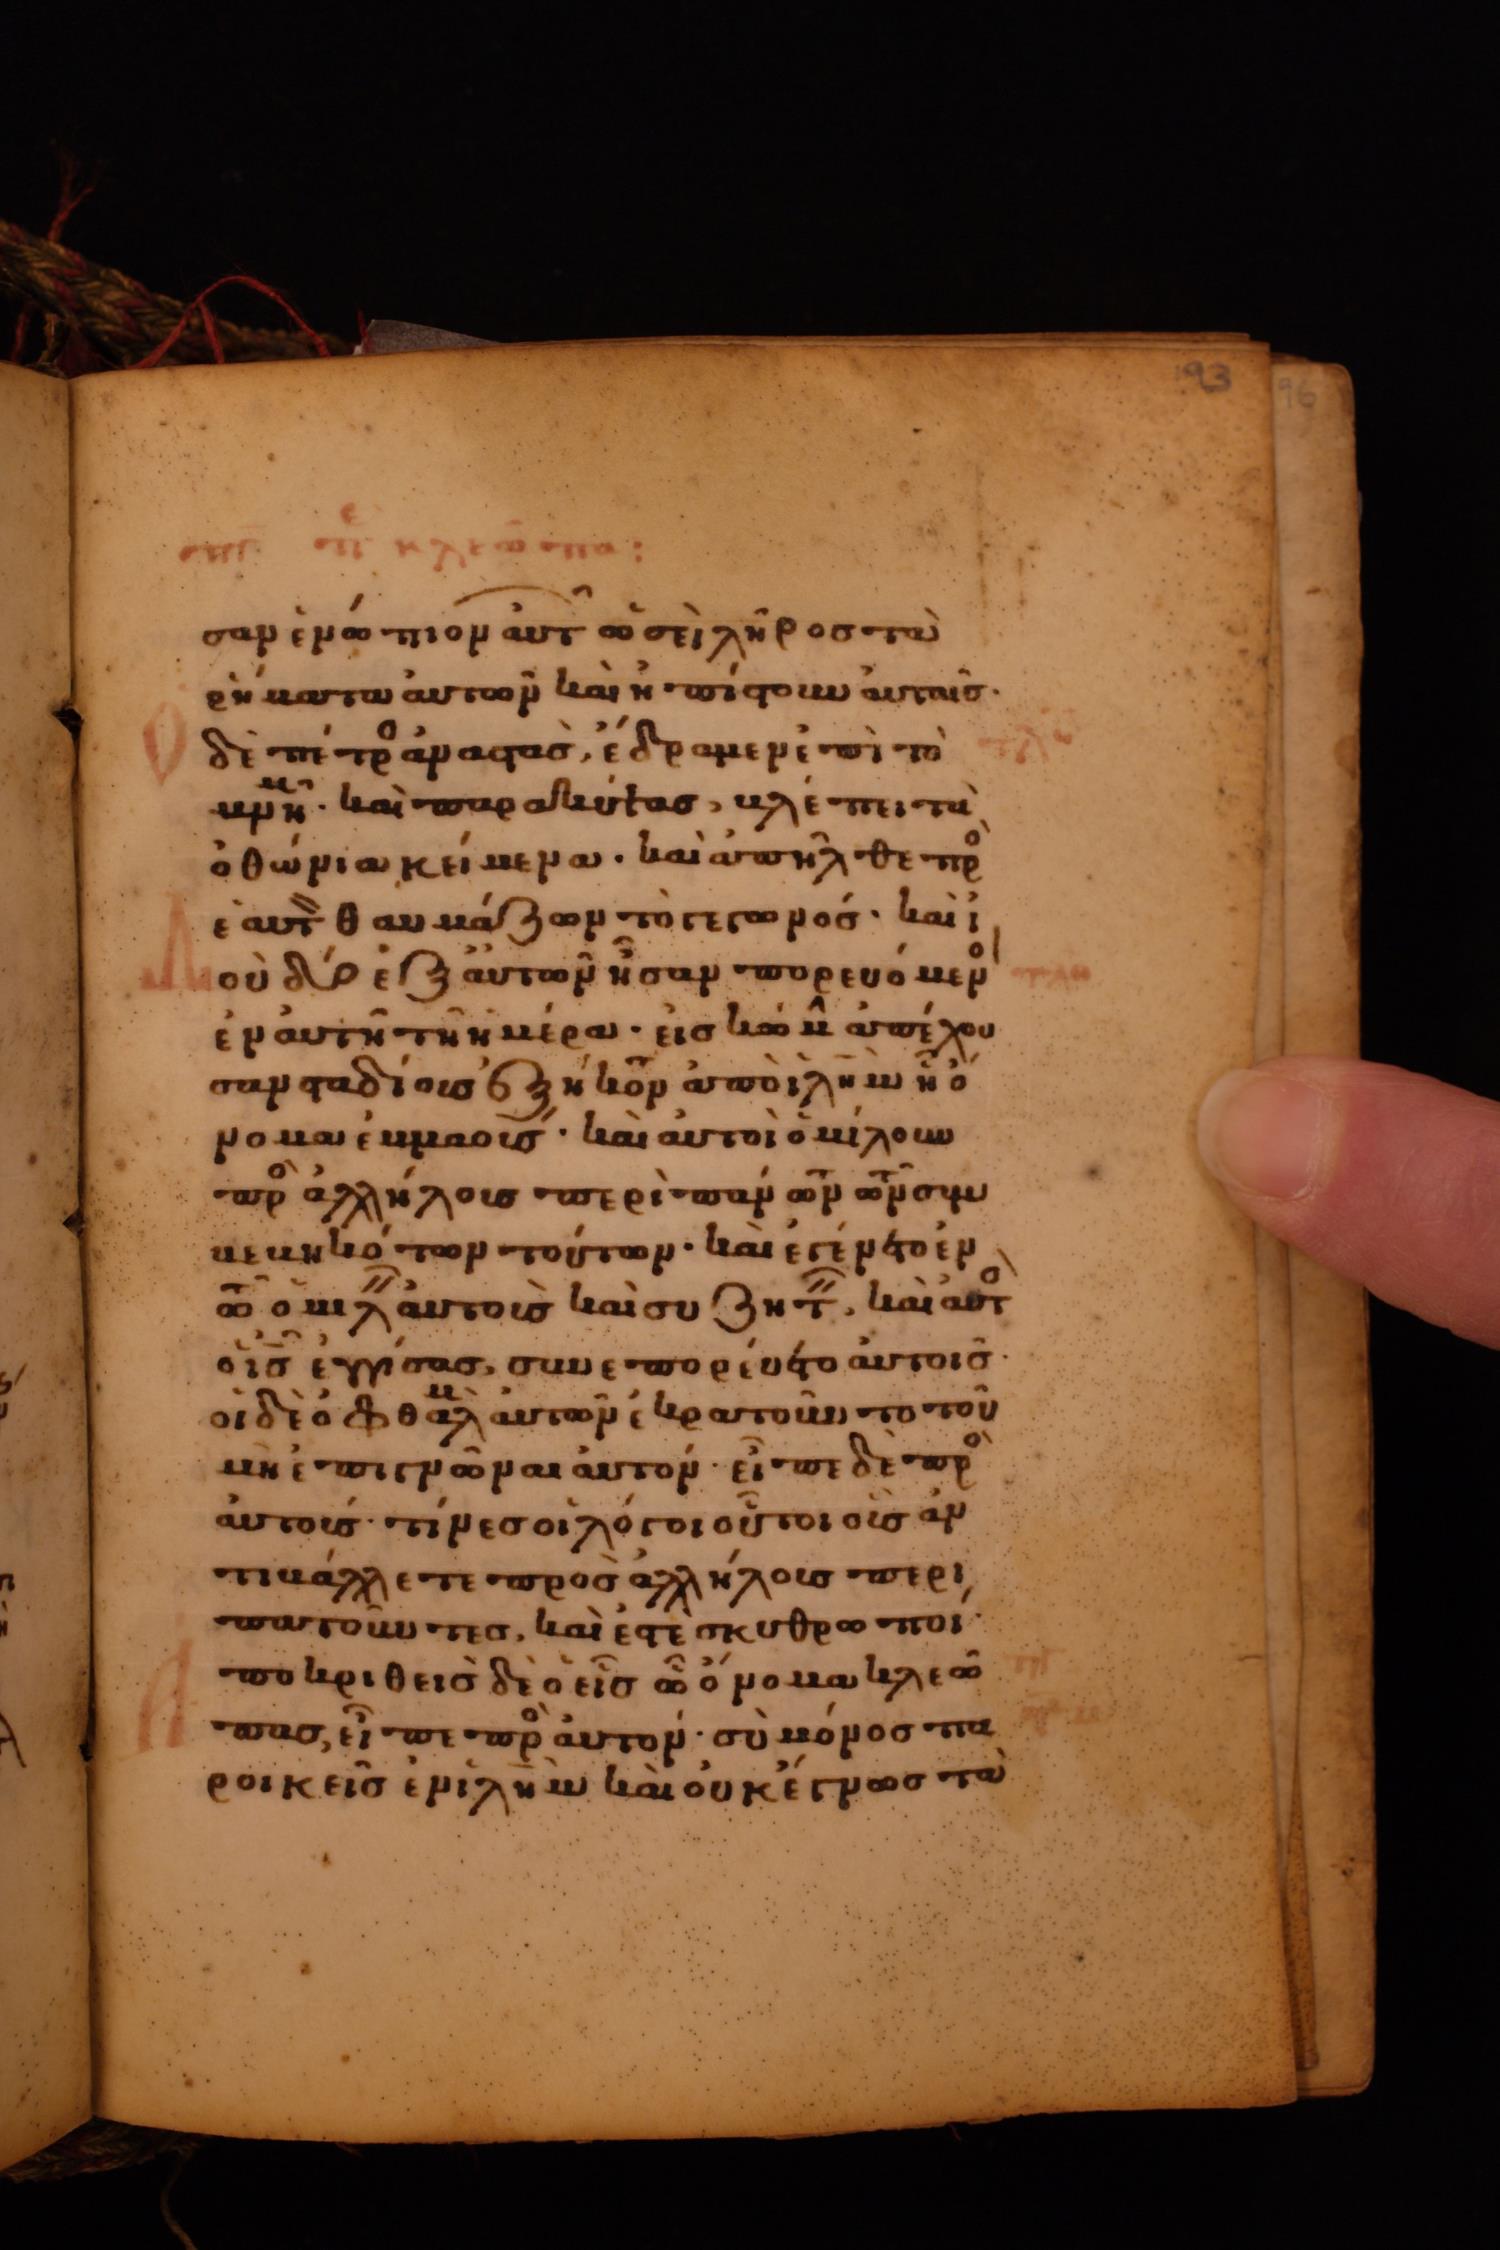 193
96
σαν ἐνώπιον αὐτ ὡσεὶ λῆρος τὰ
ρήματα αὐτῶν καὶ ἠπίστουν αὐταῖς·
Ο δὲ πέτρ ἀναστὰς, ἔδραμεν ἐπὶ τὸ
μνημ· καὶ παρακύψας, βλέπει τὰ
ὀθώνια κείμενα· καὶ ἀπῆλθε πρ
ἑαυτ θαυμάζων τὸ γεγωνός· καὶ ἰ
δοὺ δύο ἐξ αὐτῶν ἦσαν πορευόμεν
ἐν αὐτῆ τῆ ἡμέρα· εἰς κώμ ἀπέχου
σαν σταδίους ἑξήκον ἀπὸ ἰλημ ἧ ὄ
νομα ἐμμαούς· καὶ αὐτοὶ ὁμίλουν
πρ ἀλλήλους περὶ πάντων τῶν συμ
βεβηκότων τούτων· καὶ ἐγένετο ἐν
τῶ ὁμιλ αὐτοὺς καὶ συζητ, καὶ αὐτ
ὁ ις ἐγγίσας, συνεπορεύετο αὐτοῖς·
οἱ δὲ ὀφθαλμ αὐτῶν ἐκρατοῦντο τοῦ
μὴ ἐπιγνῶναι αὐτόν· εἶπε δὲ πρ
αὐτούς· τίνες οἱ λόγοι οὗτοι οὓς ἀν
τιβάλλετε πρὸς ἀλλήλους περι
πατοῦντες, καὶ ἐστὲ σκυθρωποί·
Α ποκριθεὶς δὲ ὁ εἷς ὧ ὄνομα κλεώ
πας, εἶπε πρ αὐτόν· σὺ μόνος πα
ροικεῖς ἐν ἰλημ καὶ οὐκ ἔγνως τὰ